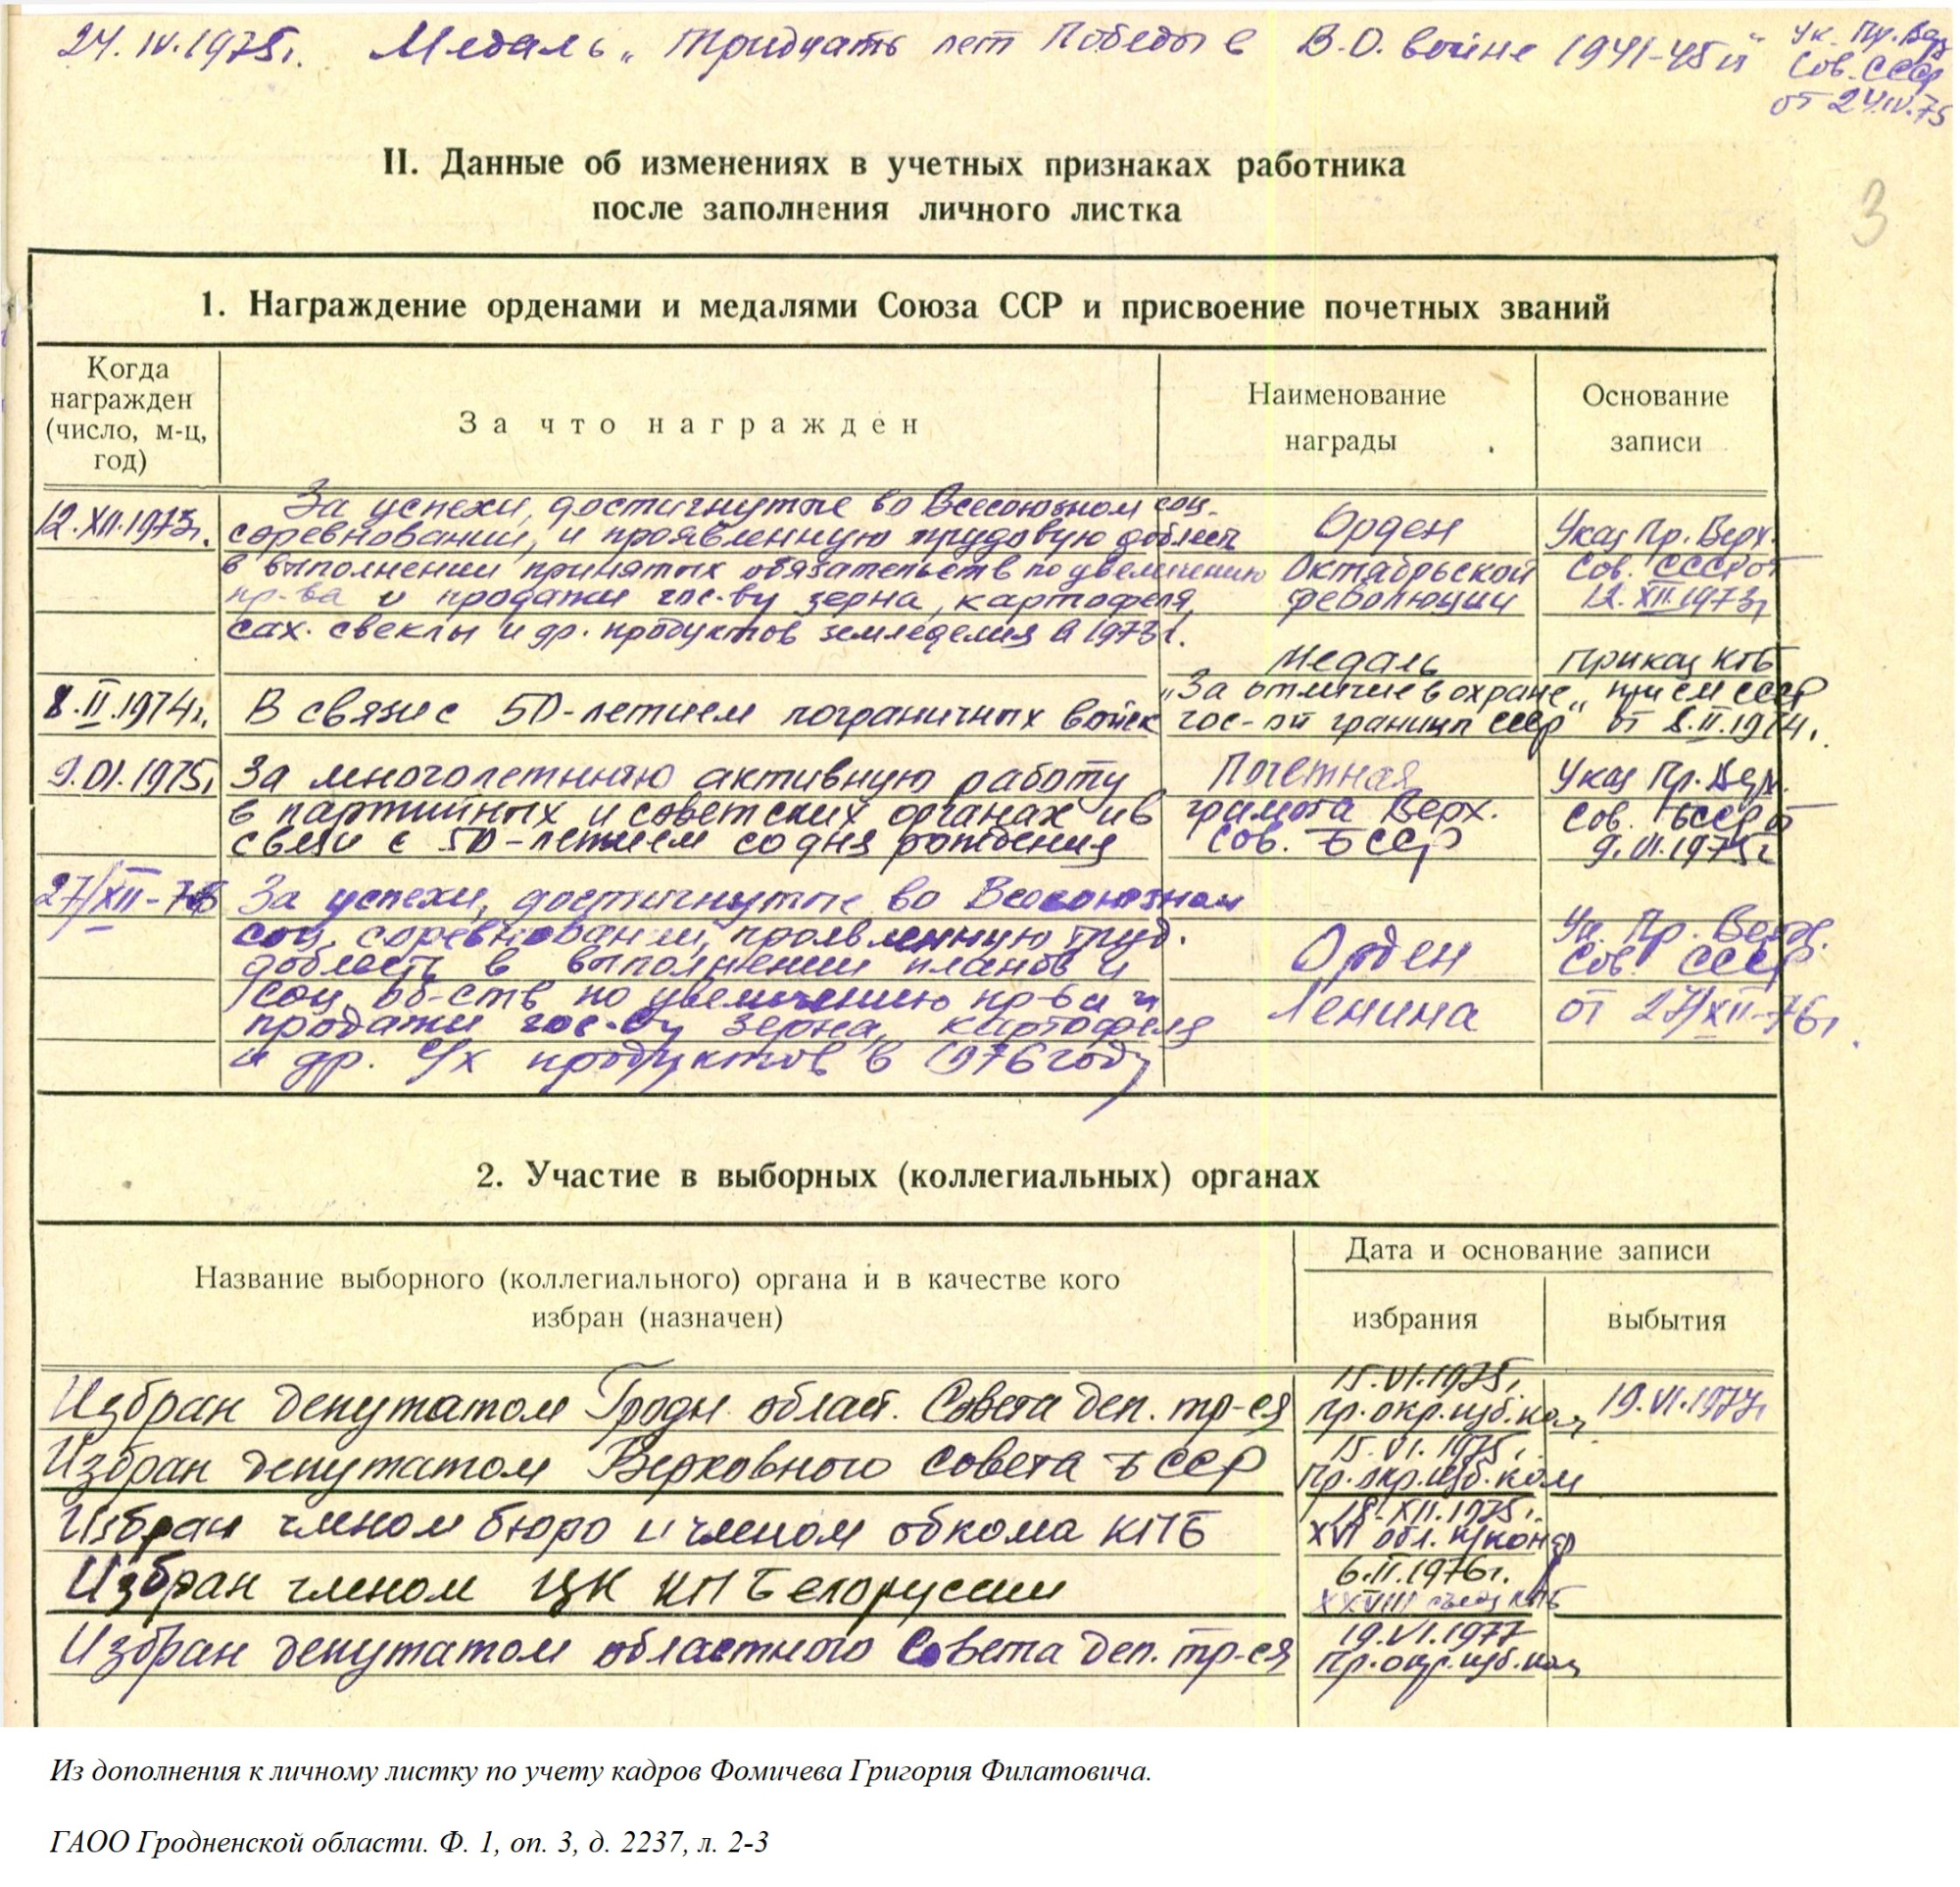 24.IV.1975г. Медаль „Тридцать лет Победы в В.О. войне 1941-45гг"
Ук. Пр. Вер.
Сов. СССР
от 24.IV.75
3
II. Данные об изменениях в учетных признаках работника
после заполнения личного листка
1. Награждение орденами и медалями Союза ССР и присвоение почетных званий
Когда
награжден
(число, м-ц,
год)
За что награжден
Наименование
награды
Основание
записи
12.XII.1973г.
За успехи, достигнутые во Всесоюзном соц.
соревновании, и проявленную трудовую доблесть
в выполнении принятых обязательств по увеличению
пр-ва и продажи гос-ву зерна, картофеля,
сах. свеклы и др. продуктов земледелия в 1973г.
Орден
Октябрьской
революции
Указ Пр. Верх.
Сов. СССР от
12.XII.1973г
8.II.1974г.
В связи с 50-летием пограничных войск
Медаль
„За отличие в охране
гос-ой границы СССР"
Приказ КГБ
при СМ СССР
от 8.II.1974г.
9.VI.1975г
За многолетнюю активную работу
в партийных и советских органах и в
связи с 50-летием со дня рождения
Почетная
грамота Верх.
Сов. БССР
Указ Пр. Верх.
Сов. БССР от
9.VI.1975г
27/XII-76
За успехи, достигнутые во Всесоюзном
соц. соревновании, проявленную труд.
доблесть в выполнении планов и
соц. об-ств по увеличению пр-ва и
продажи гос-ву зерна, картофеля
и др. с/х продуктов в 1976 году
Орден
Ленина
Ук. Пр. Верх.
Сов. СССР
от 27/XII-76г.
2. Участие в выборных (коллегиальных) органах
Название выборного (коллегиального) органа и в качестве кого
избран (назначен)
Дата и основание записи
избрания
выбытия
Избран депутатом Гродн. област. Совета деп. тр-ся
15.VI.1975г.
Пр. окр. изб. ком
19.VI.1977г
Избран депутатом Верховного Совета БССР
15.VI.1975г.
Пр. окр. изб. ком
Избран членом бюро и членом обкома КПБ
18.XII.1975г.
XVI обл. п/конф
Избран членом ЦК КП Белоруссии
6.II.1976г.
XXVIII съезд КПБ
Избран депутатом областного Совета деп. тр-ся
19.VI.1977
Пр. окр. изб. ком
Из дополнения к личному листку по учету кадров Фомичева Григория Филатовича.
ГАОО Гродненской области. Ф. 1, оп. 3, д. 2237, л. 2-3